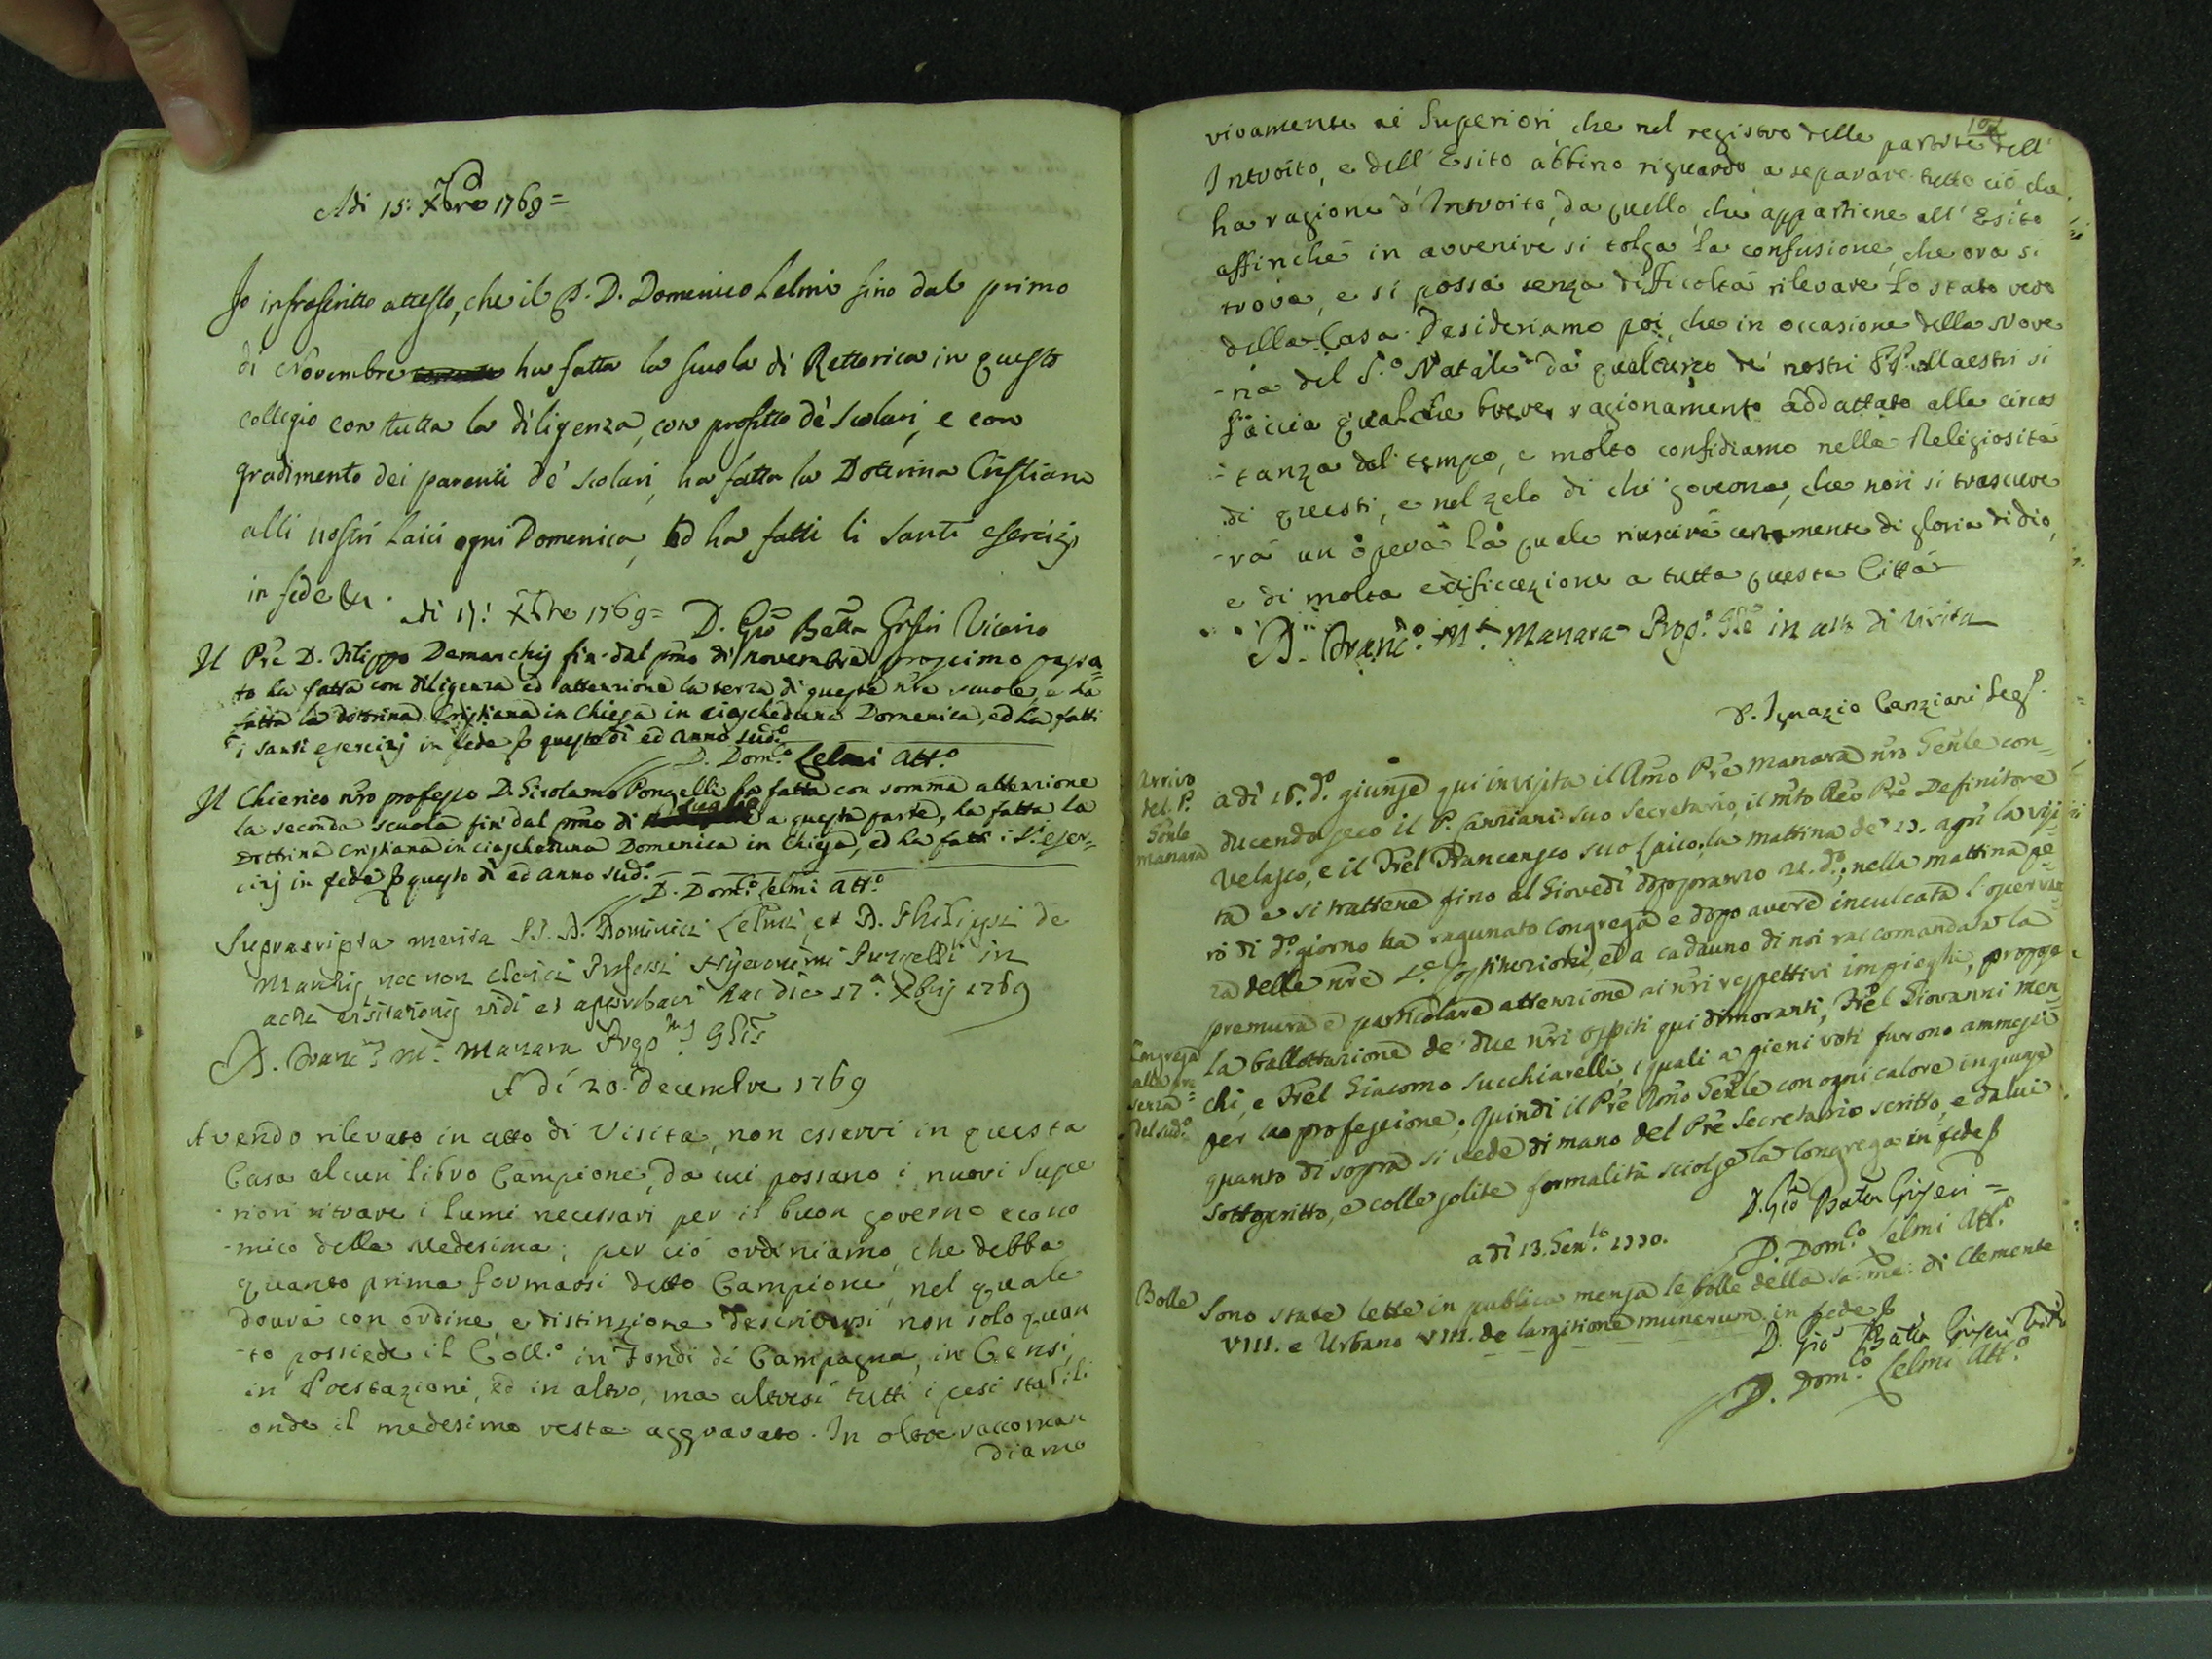 Adi 15: Xbre 1769=
Io infrascritto attesto, che il P. D. Domenico Lelmi sino dal primo
di Novembre ha fatta la scuola di Rettorica in questo
collegio con tutta la diligenza, con profitto de' scolari, e con
gradimento dei parenti de' scolari, ha fatta la Dottrina Cristiana
alli nostri Laici ogni Domenica, ed ha fatti li santi esercizj
in fede &c.
D. Gio Batta Griseri Vicario
Adi 15: Xbre 1769=
Il Pre D. Filippo Demarchij fin dal pmo di novembre prossimo passa=
to ha fatta con diligenza ed attenzione la terza di queste nre scuole, e ha
fatta la dottrina Cristiana in Chiesa in ciascheduna Domenica, ed ha fatti
i santi esercizj in fede questo dì ed anno sud.o
D. Dom.co Lelmi Att.o
Il Chierico nro professo D. Girolamo Pongelli ha fatta con somma attenzione
la seconda scuola fin dal pmo di luglio a questa parte, ha fatta la
Dottrina Cristiana in ciascheduna Domenica in Chiesa, ed ha fatti i S.ti eser=
cizj in fede questo dì ed anno sud.o
D. Dom.co Lelmi Att.o
Suprascripta merita PP. D. Dominici Lelmi, et D. Philippi de
Marchij nec non Clerici Professi Hyeronimi Pungelli in
actu visitationis vidi et approbavi hac die 17.a Xbris 1769
D. Franc.s M.a Manara Prep.s Glis
A dì 20. decembre 1769
Avendo rilevato in atto di Visita, non esservi in questa
Casa alcun libro Campione, da cui possano i nuovi Supe
-riori ritrare i lumi necessari per il buon governo econo
-mico della medesima; per ciò ordiniamo, che debba
quanto prima formarsi detto Campione, nel quale
dovrà con ordine, e distinzione descriversi non solo quan
-to possiede il Coll.o in Fondi di Campagna, in Censi,
in Prestazioni, ed in altro, ma altresì tutti i pesi stabili
onde il medesimo resta aggravato. In oltre raccoman
diamo
vivamente ai Superiori, che nel registro delle partite dell'
Introito, e dell'Esito abbino riguardo a separare tutto ciò che
ha ragione d'Introito, da quello, che appartiene all'Esito
affinchè in avvenire si tolga la confusione, che ora si
trova, e si possa senza difficoltà rilevare lo stato vero
della Casa. Desideriamo poi, che in occasione della Nove
-na del S.o Natale da qualcuno de' nostri PP. Maestri si
faccia qualche breve ragionamento addattato alla circos
-tanza del tempo, e molto confidiamo nella Religiosità
di questi, e nel zelo di chi governa, che non si trascure
-rà un opera la quale riuscirà certamente di gloria di dio,
e di molta edificazione a tutta questa Città
D. Franc.o M.a Manara Prep.o Gle in atto di visita
D. Ignazio Canziani Seg.
Arrivo
del P.
Gnle
Manara
a dì 16. d.o giunse qui in visita il Rmo Pre Manara nro Genle con=
ducendo seco il P. Canziani suo Secretario, il mto Rdo Pre Definitore
Velasco, e il Frel Francesco suo Laico; la mattina de' 17. aprì la visi=
ta e si trattene fino al Giovedì dopopranzo 21. d.o; nella mattina pe=
rò di d.o giorno ha ragunato congrega e dopo avere inculcata l'osservan
za delle nre S.e Costituzioni, ed a cadauno di noi raccomandata la
premura e particolare attenzione ai nri respettivi impieghi, propose
Congrega
alla pre
senza=
del sud.o
la ballottazione de' due nri ospiti qui dimoranti, Frel Giovanni Men
chi, e Frel Giacomo Succhiarelli, i quali a pieni voti furono ammessi
per la professione. Quindi il Pre Rmo Genle con ogni calore ingiunse
quanto di sopra si vede di mano del Pre Secretario scritto, e da lui
sottoscritto, e colle solite formalità sciolse la Congrega in fede
D. Gio Batta Griseri=
D. Dom.co Lelmi Att.o
a dì 13. Gen.o 1770.
Bolle
Sono state lette in publica mensa le bolle della sa: me: di Clemente
VIII. e Urbano VIII. de largitione munerum in fede
D. Gio Batta Griseri
D. Dom.co Lelmi Att.o